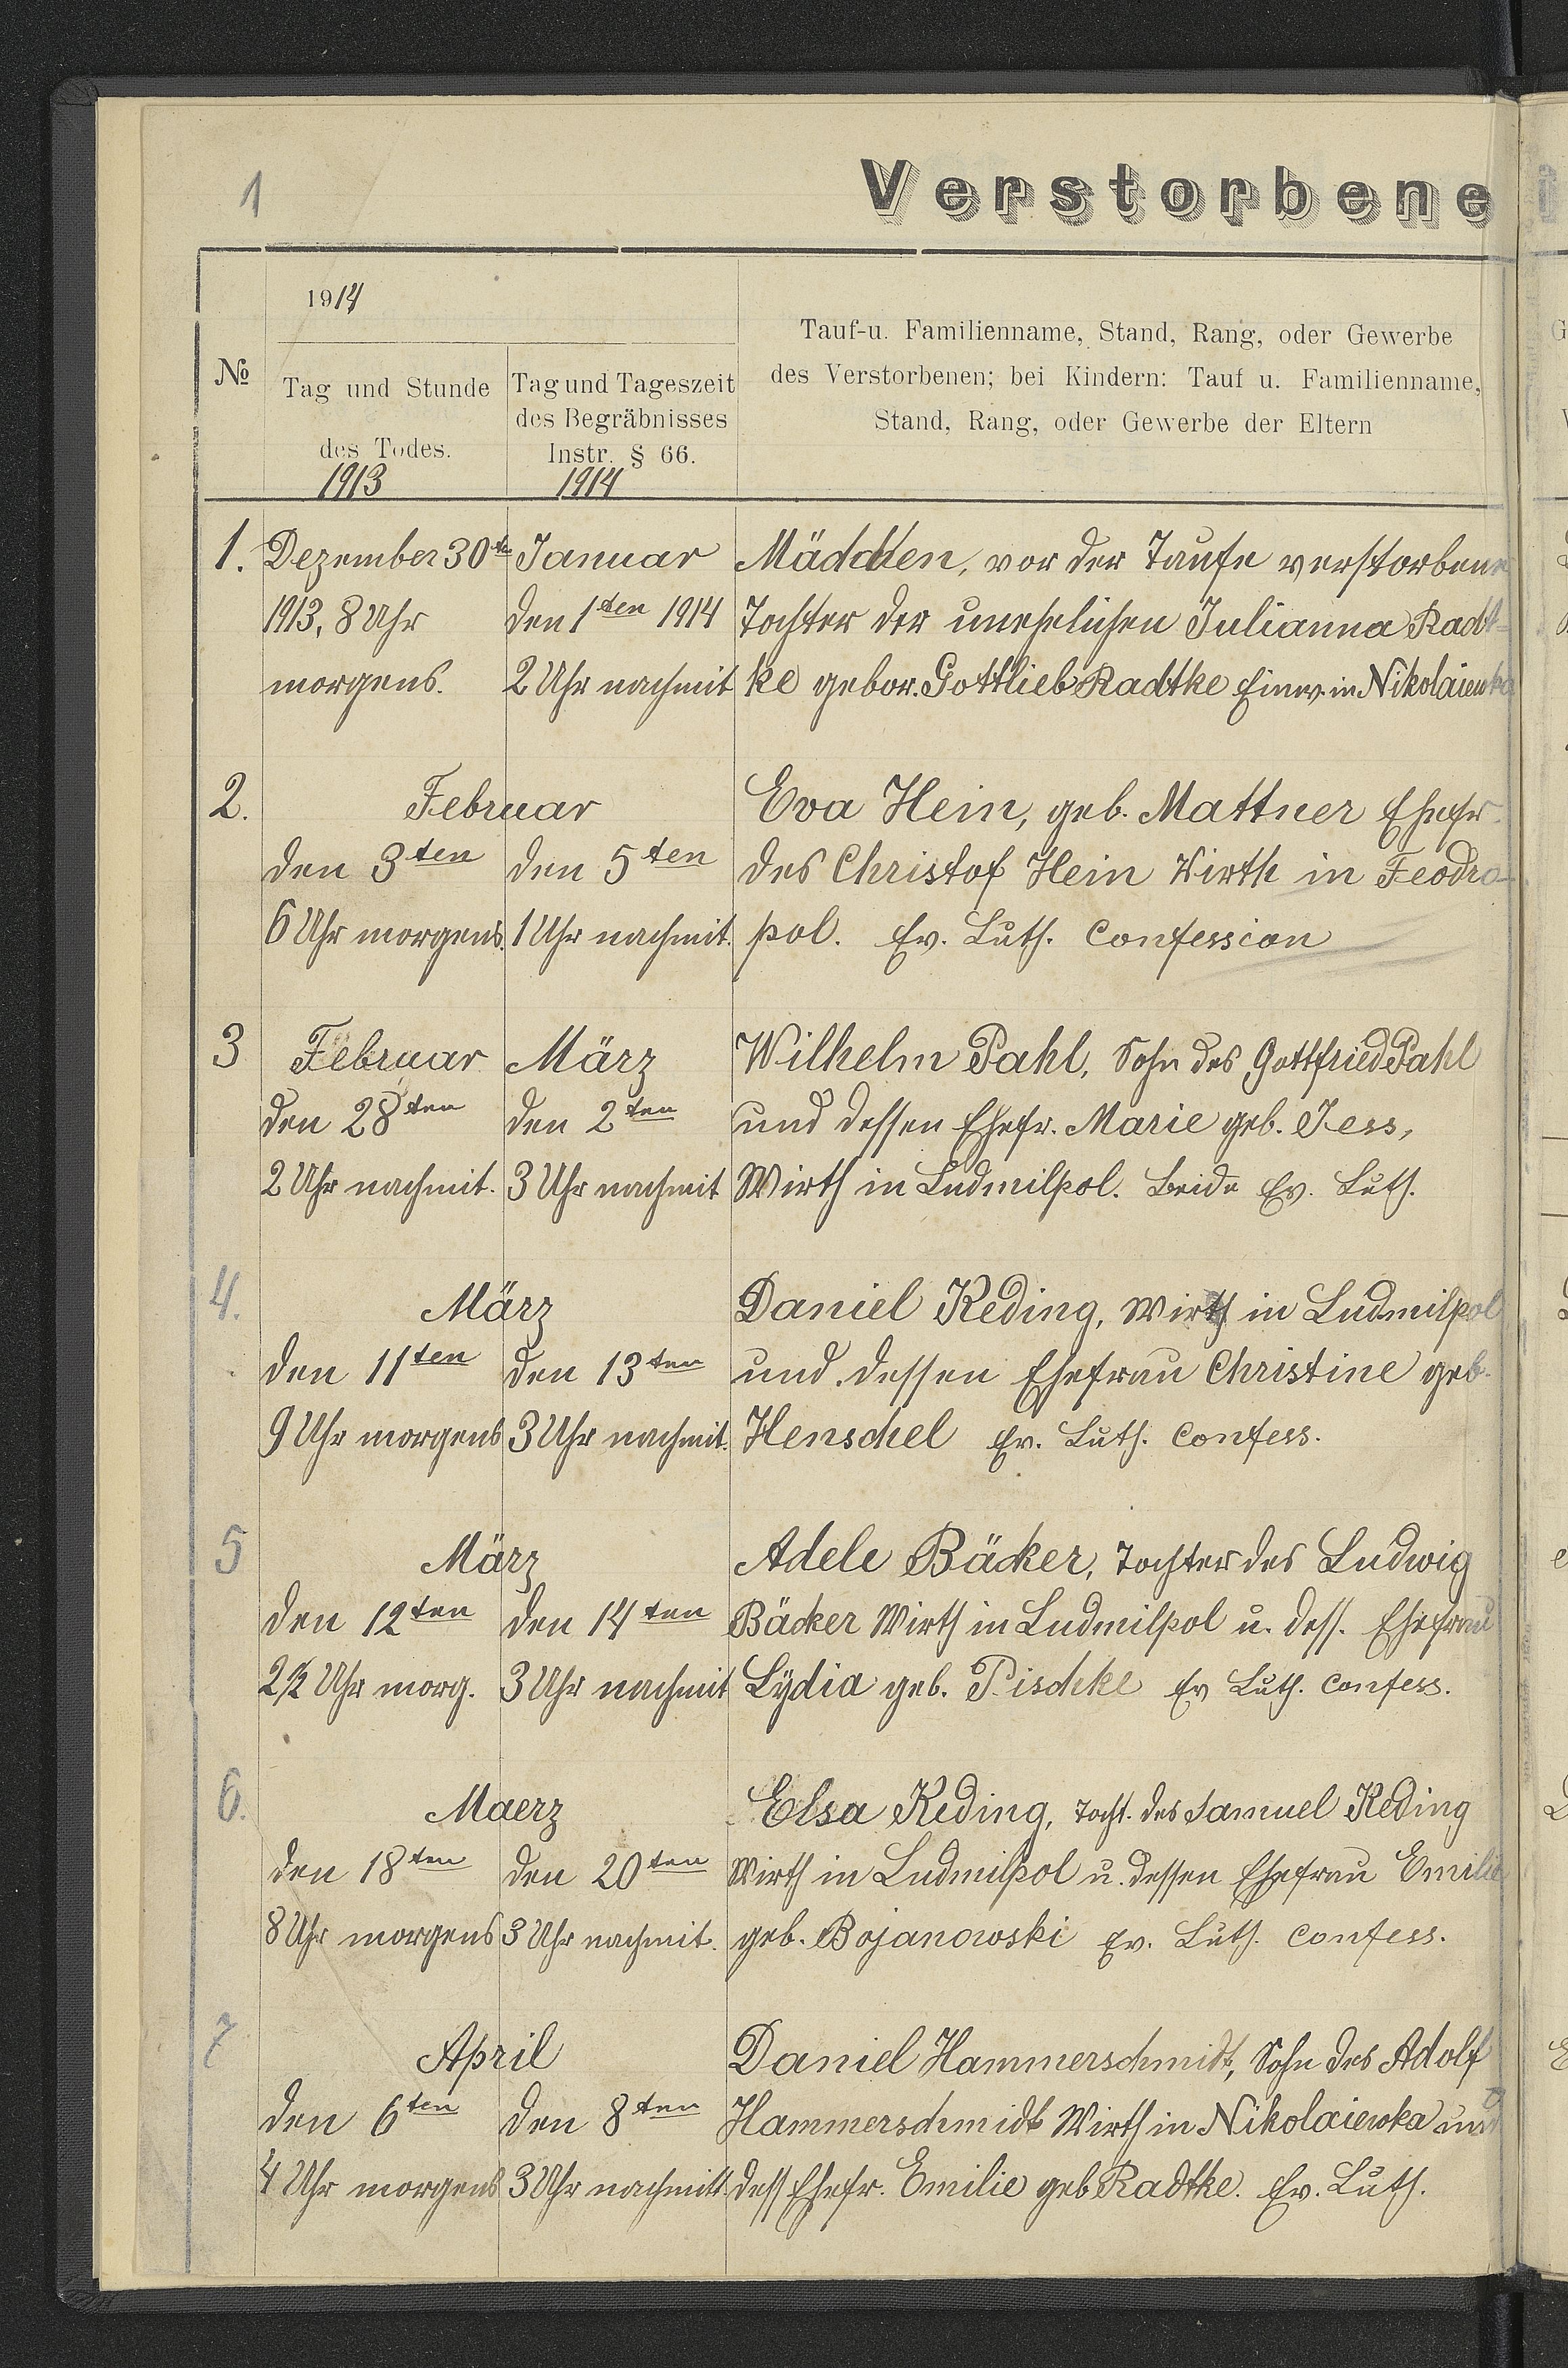 1
Verstorbene
1914
№
Tag und Stunde
des Todes.
1913
Tag und Tageszeit
des Begräbnisses
Instr. § 66.
1914
Tauf-u. Familienname, Stand, Rang, oder Gewerbe
des Verstorbenen; bei Kindern: Tauf u. Familienname,
Stand, Rang, oder Gewerbe der Eltern
1. Dezember 30ten Januar Mädchen, vor der Taufe verstorbene
1913, 8 Uhr den 1ten 1914 Tochter der unehelichen Julianna Radt-
morgens. 2 Uhr nachmit ke gebor. Gottlieb Radtke Einw. in Nikolaiewka
2. Februar Eva Hein, geb. Mattner Ehefr.
den 3ten den 5ten des Christof Hein Wirth in Feodro-
6 Uhr morgens. 1 Uhr nachmit. pol. Ev. Luth. Confession
3 Februar März Wilhelm Pahl, Sohn des Gottfried Pahl
den 28ten den 2ten und dessen Ehefr. Marie geb. Jess,
2 Uhr nachmit. 3 Uhr nachmit Wirth in Ludmilpol. Beide Ev. Luth.
4. März Daniel Keding, Wirth in Ludmilpol
den 11ten den 13ten und dessen Ehefrau Christine geb.
9 Uhr morgens 3 Uhr nachmit. Henschel Ev. Luth. Confess.
5 März Adele Bäcker, Tochter des Ludwig
den 12ten den 14ten Bäcker Wirth in Ludmilpol u. dess. Ehefrau
2½ Uhr morg. 3 Uhr nachmit Lydia geb. Pischke Ev Luth. Confess.
6. Maerz Elsa Keding, Tocht. des Samuel Keding
den 18ten den 20ten Wirth in Ludmilpol u. dessen Ehefrau Emilie
8 Uhr morgens 3 Uhr nachmit. geb. Bojanowski Ev. Luth. Confess.
7 April Daniel Hammerschmidt, Sohn des Adolf
den 6ten den 8ten Hammerschmidt Wirth in Nikolaiewka und
4 Uhr morgens 3 Uhr nachmitt. dess Ehefr. Emilie geb Radtke. Ev. Luth.